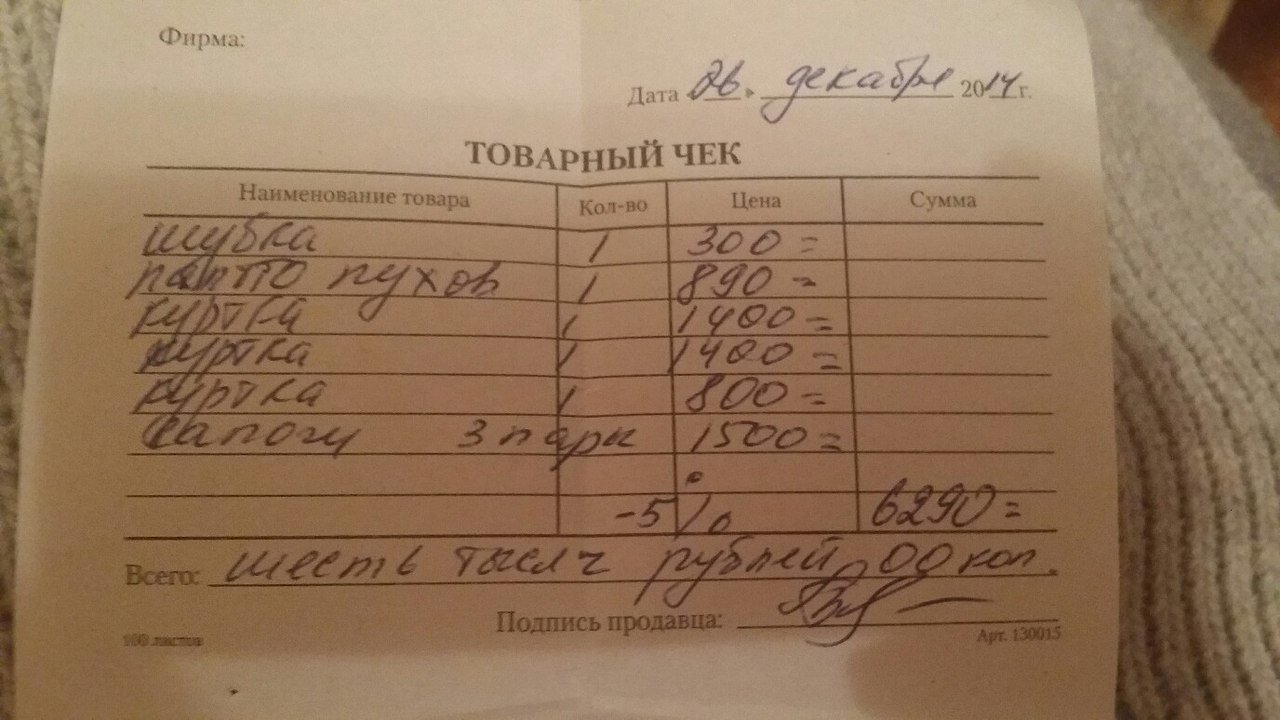 Фирма:
Дата 26. декабря 2014 г.
ТОВАРНЫЙ ЧЕК
Наименование товара Кол-во Цена Сумма
шубка 1 300=
пальто пухов 1 890=
куртка 1 1400=
куртка 1 1400=
куртка 1 800=
Сапоги 3 пары 1500=
-5% 6290=
Всего: шесть тысяч рублей 00 коп.
Подпись продавца:
100 листов Арт. 130015